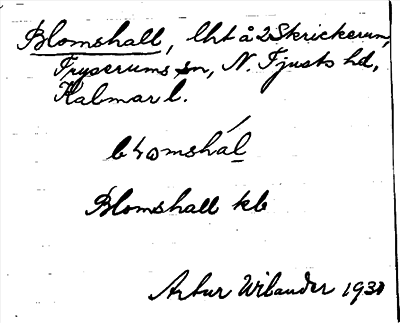 Blomshall, lht å 2 Skrickerum,
Fryserums sn, N. Tjusts hd,
Kalmar l.
blomshál
Blomshall kb
Artur Wilander 193